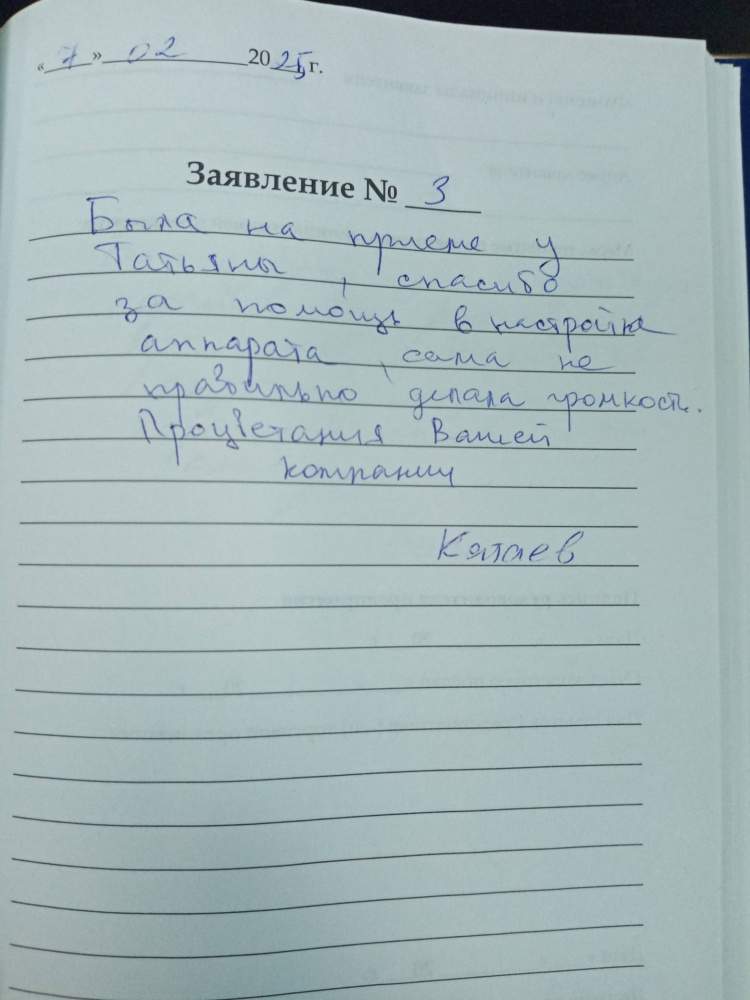 « 7 » 02 2025 г.
Заявление № 3
Была на приеме у
Татьяны, спасибо
за помощь в настройке
аппарата, сама не
правильно делала громкость.
Процветания Вашей
компании
Катаев